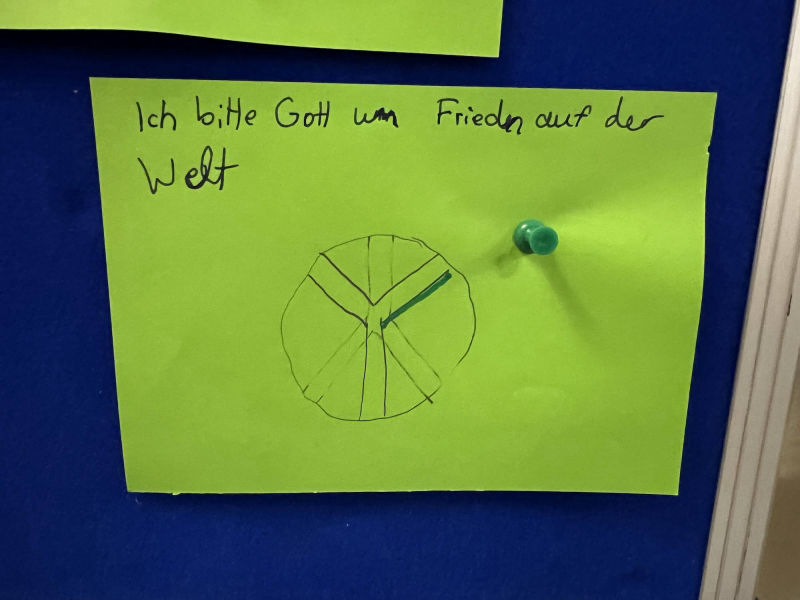 Ich bitte Gott um Frieden auf der
Welt